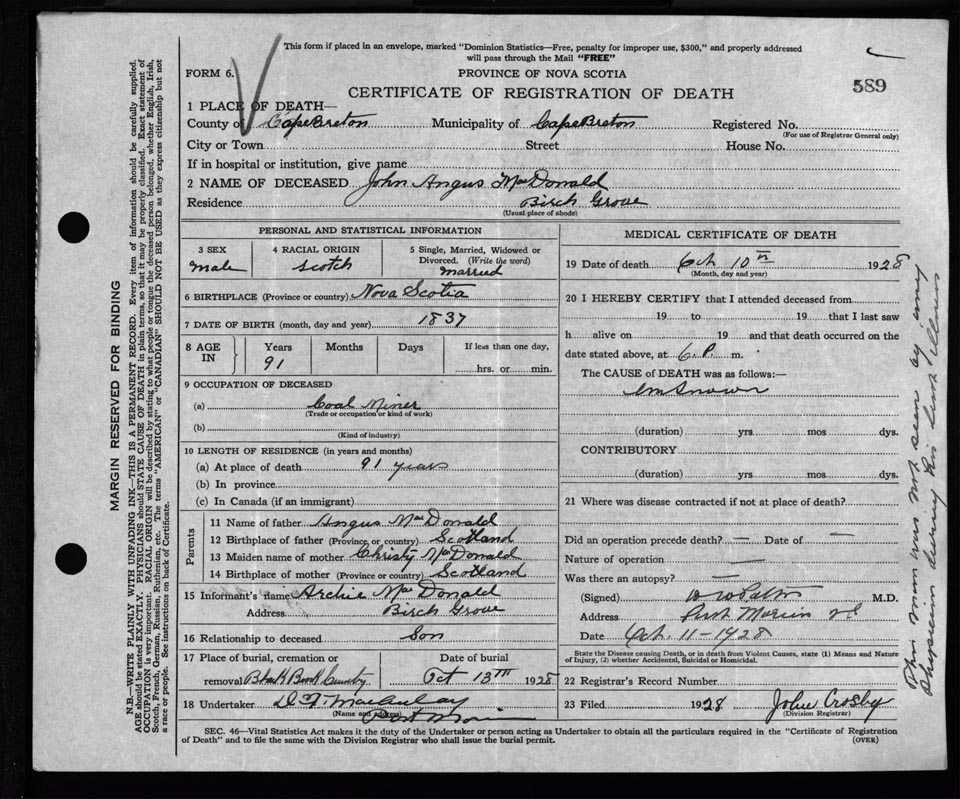 This form if placed in an envelope, marked "Dominion Statistics—Free, penalty for improper use, $300," and properly addressed
will pass through the Mail "FREE"
FORM 6.
PROVINCE OF NOVA SCOTIA
589
CERTIFICATE OF REGISTRATION OF DEATH
1 PLACE OF DEATH—
County of Cape Breton Municipality of Cape Breton Registered No.
(For use of Registrar General only)
City or Town Street House No.
If in hospital or institution, give name
2 NAME OF DECEASED John Angus MacDonald
Residence Birch Grove
(Usual place of abode)
PERSONAL AND STATISTICAL INFORMATION
3 SEX
Male
4 RACIAL ORIGIN
Scotch
5 Single, Married, Widowed or
Divorced. (Write the word)
married
6 BIRTHPLACE (Province or country) Nova Scotia
7 DATE OF BIRTH (month, day and year) 1837
8 AGE IN
Years Months Days If less than one day,
91 hrs. or min.
9 OCCUPATION OF DECEASED
(a) Coal Miner
(Trade or occupation or kind of work)
(b)
(Kind of industry)
10 LENGTH OF RESIDENCE (in years and months)
(a) At place of death 91 years
(b) In province
(c) In Canada (if an immigrant)
Parents
11 Name of father Angus MacDonald
12 Birthplace of father (Province or country) Scotland
13 Maiden name of mother Christy MacDonald
14 Birthplace of mother (Province or country) Scotland
15 Informant's name Archie MacDonald
Address Birch Grove
16 Relationship to deceased Son
17 Place of burial, cremation or Date of burial
removal Black Brook Cemetry Oct 13th 1928
18 Undertaker
(Name and address)
Port Morien
MEDICAL CERTIFICATE OF DEATH
19 Date of death Oct 10th 1928
(Month, day and year)
20 I HEREBY CERTIFY that I attended deceased from
19 to 19 that I last saw
h alive on 19 and that death occurred on the
date stated above, at 6. P. m.
The CAUSE of DEATH was as follows:—
unknown
(duration) yrs. mos dys.
CONTRIBUTORY
(duration) yrs. mos. dys.
21 Where was disease contracted if not at place of death?
Did an operation precede death? — Date of —
Nature of operation —
Was there an autopsy? —
(Signed) M.D.
Address Port Morien NS
Date Oct. 11 - 1928
State the Disease causing Death, or in death from Violent Causes, state (1) Means and Nature
of Injury, (2) whether Accidental, Suicidal or Homicidal.
22 Registrar's Record Number
23 Filed 1928 John Crosby
(Division Registrar)
SEC. 46—Vital Statistics Act makes it the duty of the Undertaker or person acting as Undertaker to obtain all the particulars required in the "Certificate of Registration
of Death" and to file the same with the Division Registrar who shall issue the burial permit.
(OVER)
MARGIN RESERVED FOR BINDING
N.B.—WRITE PLAINLY WITH UNFADING INK—THIS IS A PERMANENT RECORD. Every item of information should be carefully supplied.
AGE should be stated EXACTLY. PHYSICIANS should STATE CAUSE OF DEATH in plain terms, so that it may be properly classified. Exact statement of
OCCUPATION is very important. RACIAL ORIGIN will be described by stating to what people or tongue the deceased person belonged, whether English, Irish,
Scotch, French, German, Russian, Ruthenian, etc. The terms "AMERICAN" or "CANADIAN" SHOULD NOT BE USED as they express citizenship but not
a race or people. See instructions on back of Certificate.
This man was not seen by any
Physician during his last illness